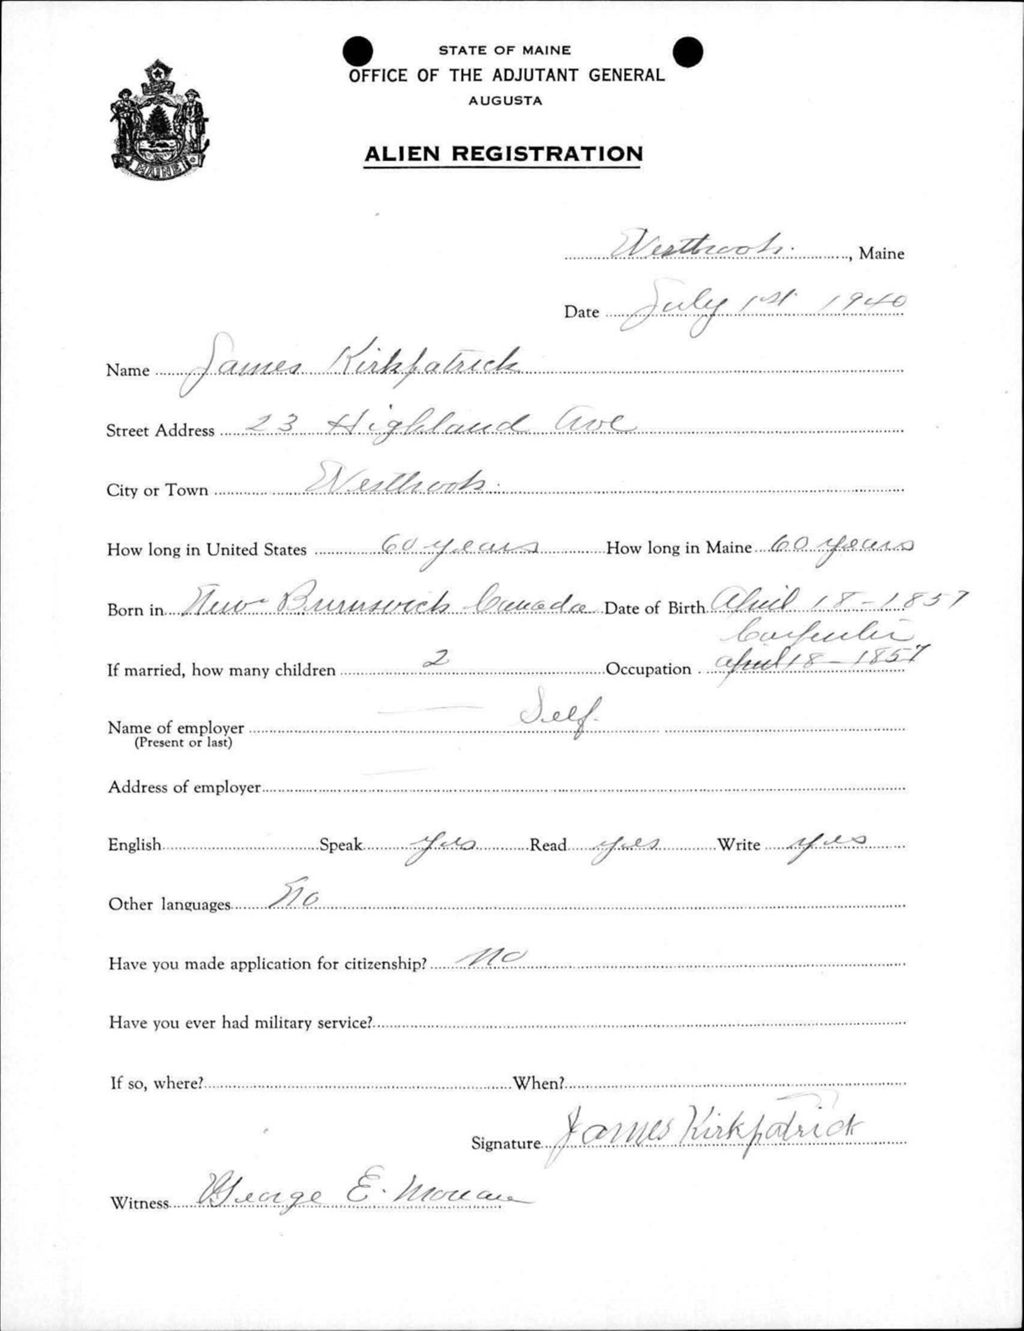 STATE OF MAINE
OFFICE OF THE ADJUTANT GENERAL
AUGUSTA
ALIEN REGISTRATION
MAINE
Westbrook, Maine
Date July 1st 1940
Name James Kirkpatrick
Street Address 23 Highland Ave
City or Town Westbrook
How long in United States 60 years How long in Maine 60 years
Born in New Brunswick Canada Date of Birth April 18-1857
Carpenter
If married, how many children 2 Occupation april 18-1857
Name of employer Self.
(Present or last)
Address of employer
English Speak yes Read yes Write yes
Other languages No
Have you made application for citizenship? no
Have you ever had military service?
If so, where? When?
Signature James Kirkpatrick
Witness George E.